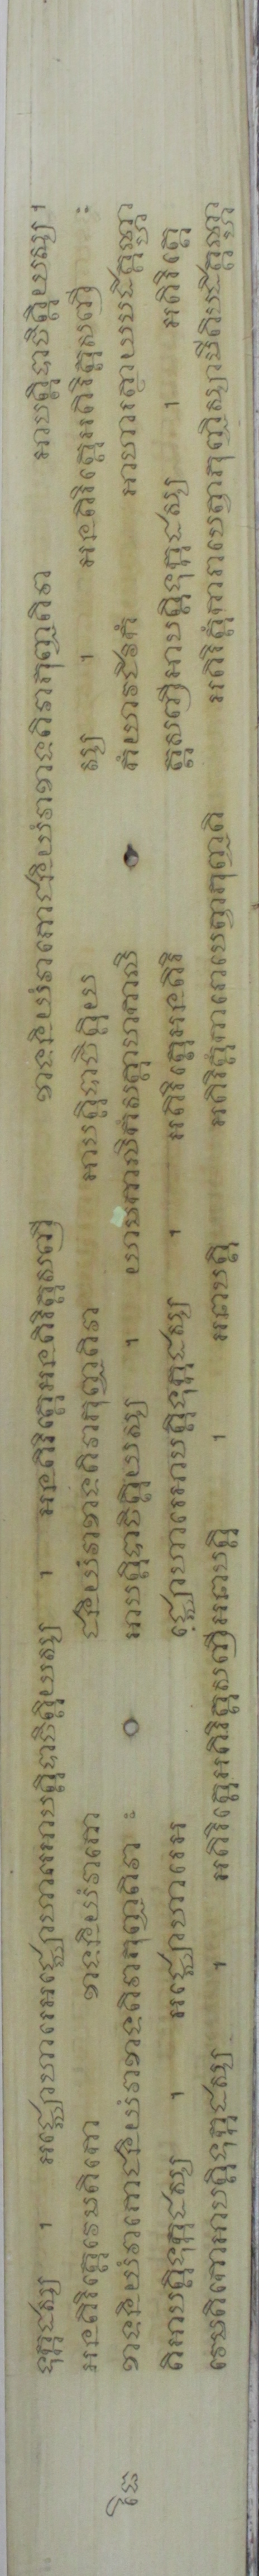 ទុក្កដស្ស ។ អជ្ឈោហារេអជ្ឈោហារេអាបត្តិបាចិត្តិយស្ស ។ អនតិរិត្តេអនតិរិត្តសញ្ញី ខាទនិយំវាភោជនិយំវាខាទតិវាភុញ្ជតិវា អាបត្តិបាចិត្តិយស្ស ។
អនតិរិត្តេវេមតិកោ ខាទនិយំវាភោ ជនិយំវាខាទតិវាភុញ្ជតិវា អាបត្តិបាចិត្តិយ ស្ស ។ អនតិរិត្តេអតិរិត្តសញ្ញី ៈ
ខាទនិយំវាភោជនិយំវាខាទតិវាភុញ្ជតិវា ៈ អាបត្តិបាចិត្តិយស្ស ។ យាមកាលិកំសត្តាហកាលិ កំយាវជីវកំ អាហារត្ថាយបដិគ្គណ្ហា
តិអាបត្តិទុក្កដស្ស ។ អជ្ឈោហារេអ ជ្ឈោហារេអាបត្តិទុក្កដស្ស ។ អតិរិត្តេអនតិរិ ត្តសញ្ញីអាបត្តិទុក្កដស្ស ។ អតិរិត្តេ
វេមតិកោអាបត្តិទុក្កដស្ស ។ អតិរិត្តេអតិរិត្តសញ្ញីអនាបត្តិ ។ អនាបត្តិ អតិរិត្តំការាបេត្វាភុញ្ជតិ អតិរិត្តំការាបេត្វាភុញ្ជិស្សាមីតិបដិគ្គណ្ហា